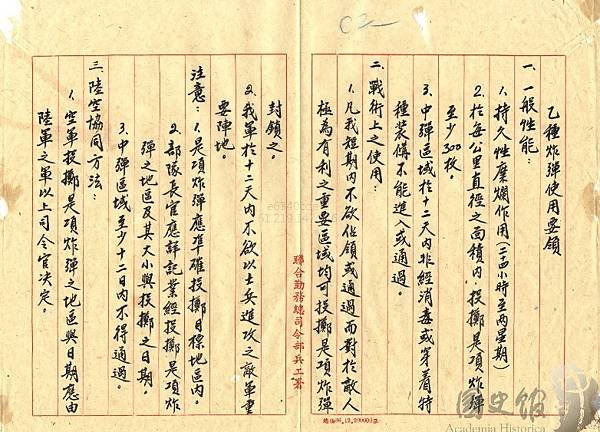 乙種炸彈使用要領
一、一般性能：
1.持久性糜爛作用（二十四小時至兩星期）
2.於每公里直徑之面積內，投擲是項炸彈
至少300枚。
3.中彈區域於十二天內非經消毒或穿着特
種裝備不能進入或通過。
二、戰術上之使用：
1.凡我短期內不欲佔領或通過而對於敵人
極為有利之重要區域均可投擲是項炸彈
聯合勤務總司令部兵工署
封鎖之。
2.我軍於十二天內不欲以士兵進攻之敵軍重
要陣地。
注意：1.是項炸彈應準確投擲目標地區內。
2.部隊長官應詳記業經投擲是項炸
彈之地區及其大小與投擲之日期。
3.中彈區域至少十二日內不得通過。
三、陸空協同方法：
1.空軍投擲是項炸彈之地區與日期應由
陸軍之軍以上司令官決定。
C2
國史館
Academia Historica